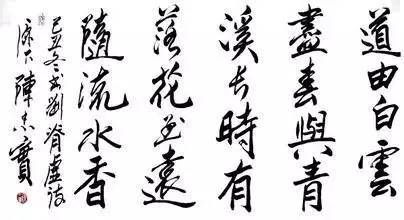 道由白雲
盡春與青
溪長時有
落花至遠
隨流水香
己丑冬書劉脊虛詩
陳忠實